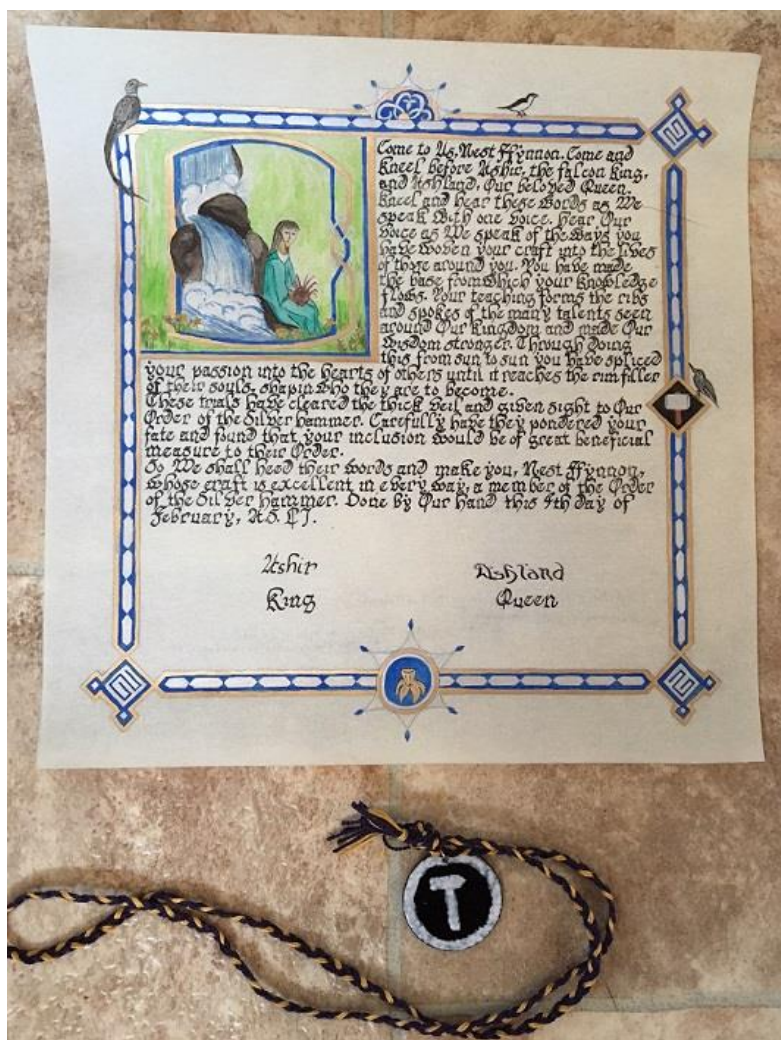 Come to Us, Nest Ffynnon. Come and
Kneel before Ashir, the falcon King,
and Ashland, Our beloved Queen.
Kneel and hear these words as We
speak with one voice. Hear Our
voice as We speak of the ways you
have woven your craft into the lives
of those around you. You have made
the base from which your knowledge
flows. Your teaching forms the ribs
and spokes of the many talents seen
around Our Kingdom and made Our
Wisdom stronger. Through doing
this from sun to sun you have spliced
your passion into the hearts of others until it reaches the rim filler
of their souls, shapin who they are to become.
These trials have cleared the thick veil and given sight to Our
Order of the Silver Hammer. Carefully have they pondered your
fate and found that your inclusion would be of great beneficial
measure to their Order.
So We shall heed their words and make you, Nest Ffynnon,
whose craft is excellent in every way, a member of the Order
of the Silver Hammer. Done by Our Hand this 4th day of
February, AS. LI.
Ashir
King
Ashland
Queen